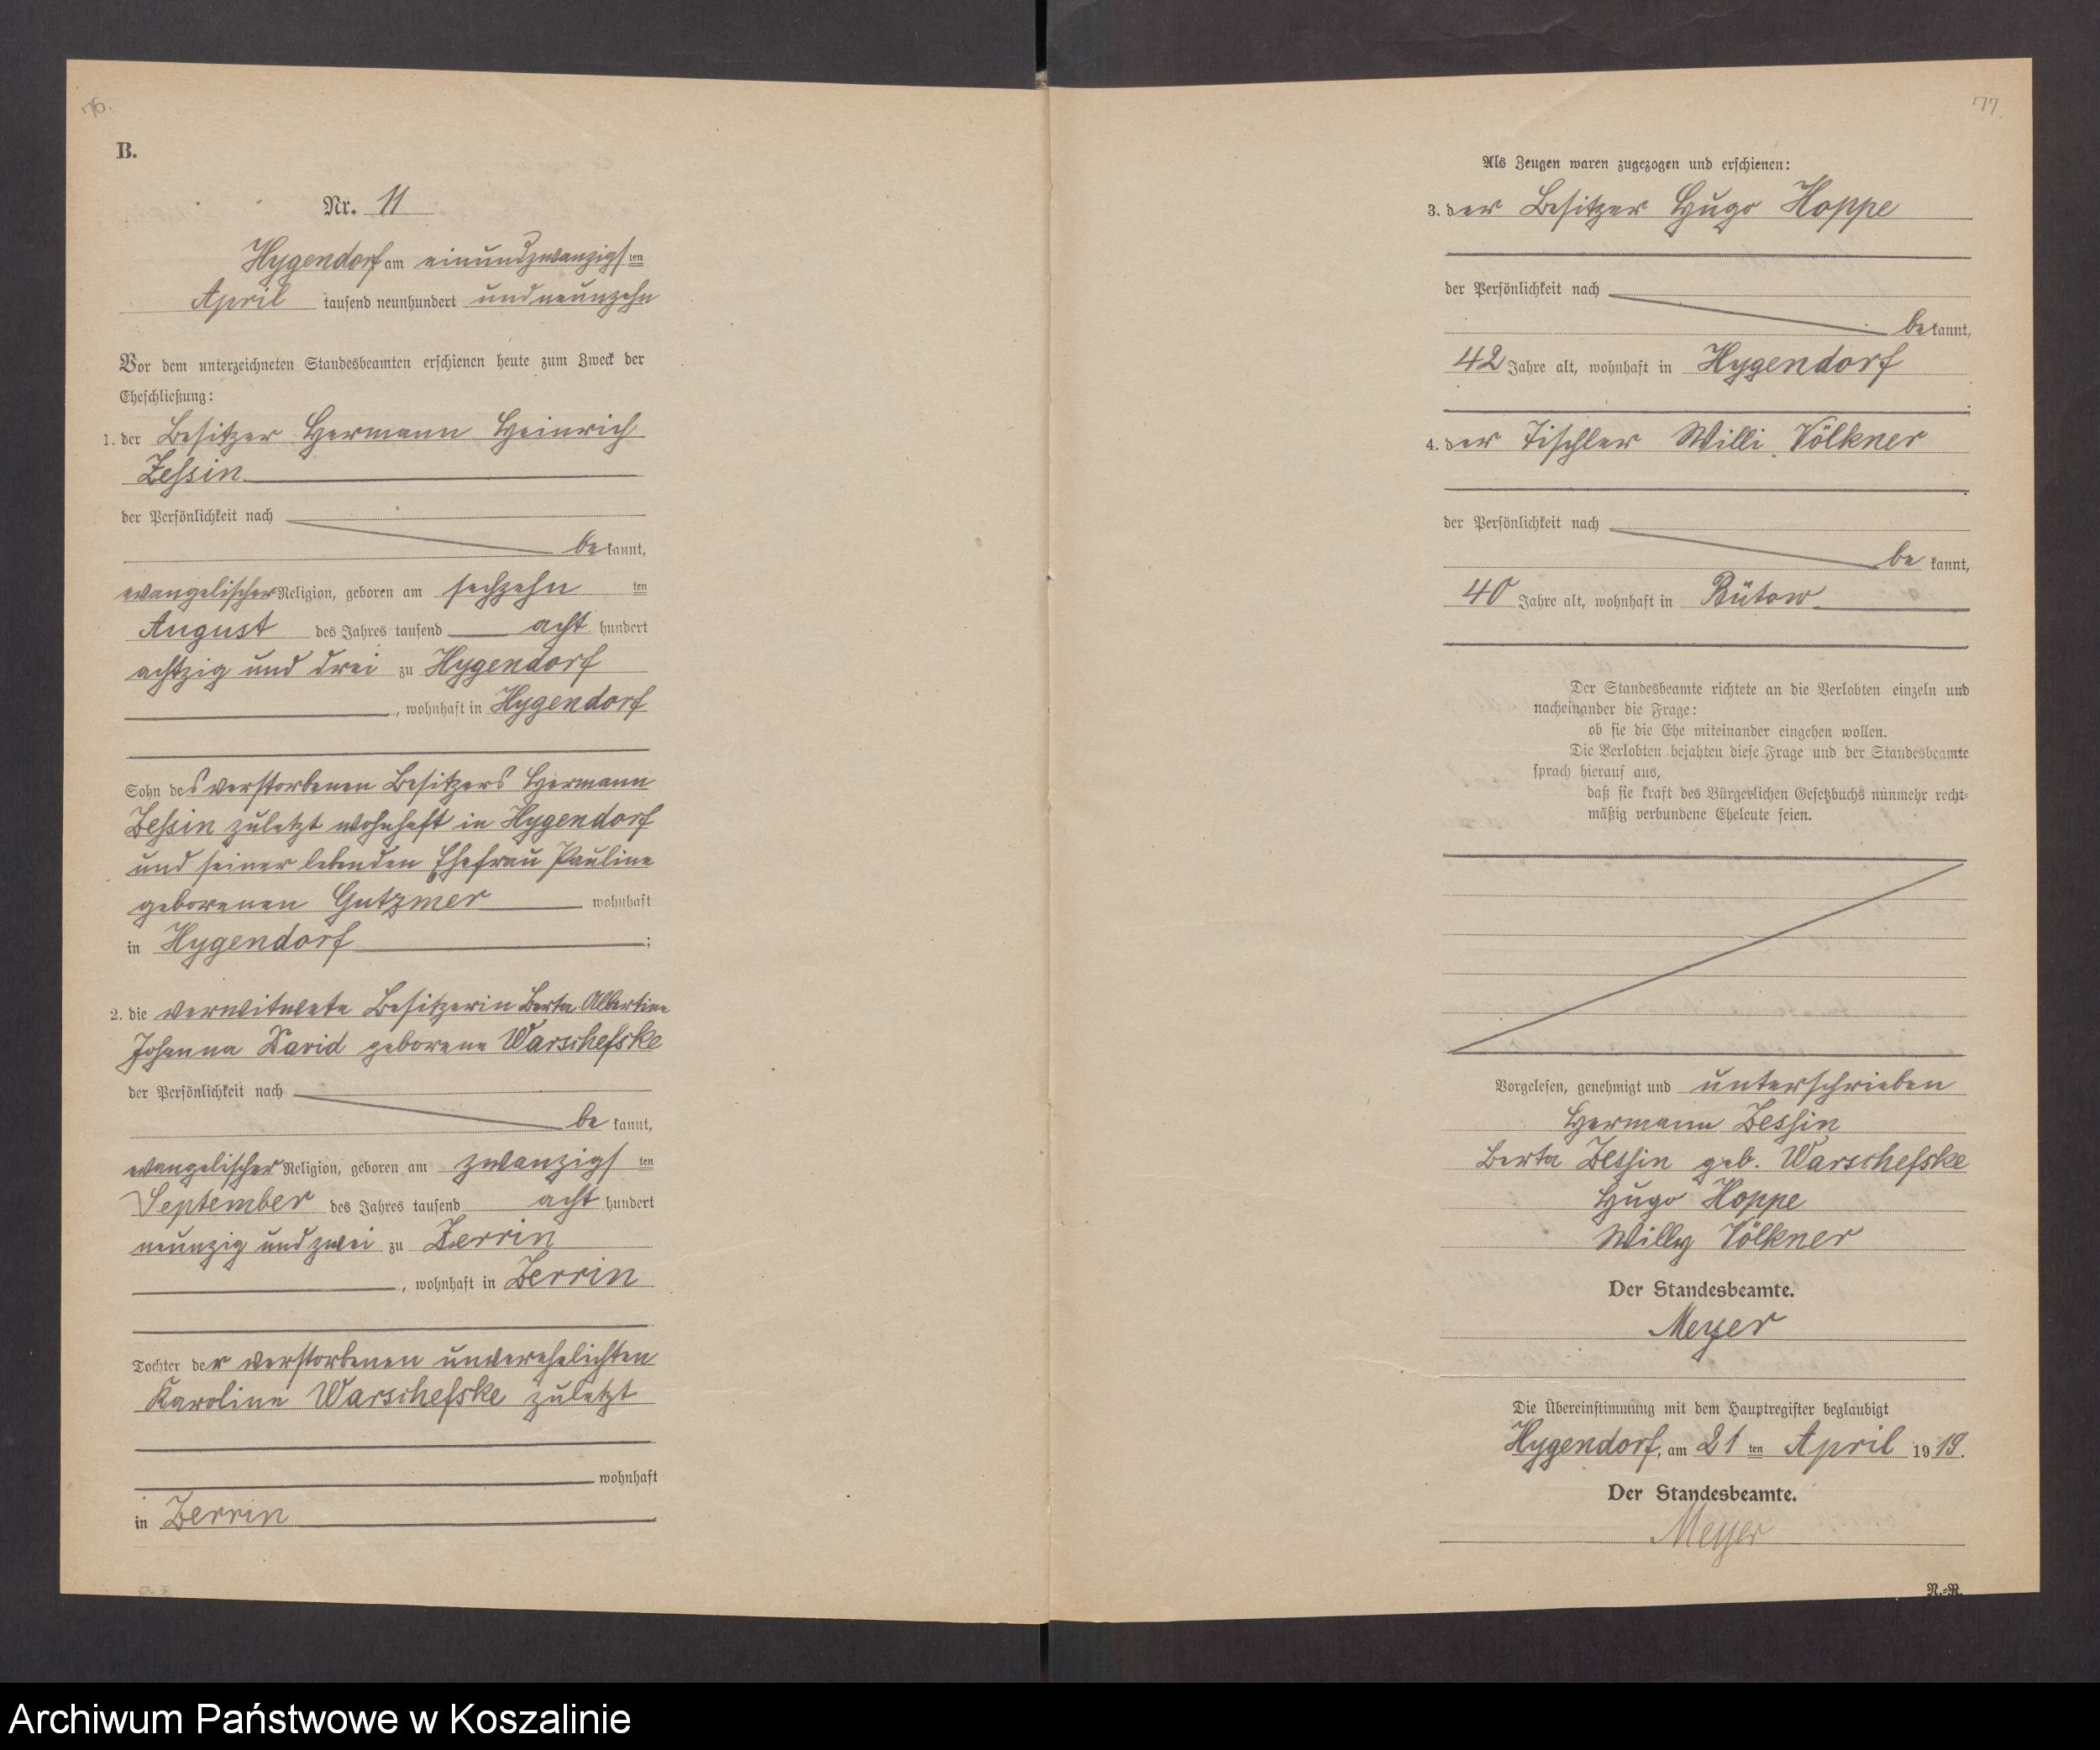 76.
B.
Nr. 11
Hygendorf am einundzwanzigsten
April tausend neunhundert undneunzehn
Vor dem unterzeichneten Standesbeamten erschienen heute zum Zweck der
Eheschließung:
1. der Besitzer Hermann Heinrich
Zessin
der Persönlichkeit nach
bekannt,
evangelischer Religion, geboren am sechzehn ten
August des Jahres tausend acht hundert
achtzig und drei zu Hygendorf
, wohnhaft in Hygendorf
Sohn des verstorbenen Besitzers Hermann
Zessin zuletzt wohnhaft in Hygendorf
und seiner lebenden Ehefrau Pauline
geborenen Gutzmer wohnhaft
in Hygendorf ;
2. die verwitwete Besitzerin Berta Albertine
Johanna David geborene Warschefske
der Persönlichkeit nach
bekannt,
evangelischer Religion, geboren am zwanzigsten
September des Jahres tausend acht hundert
neunzig und zwei zu Zerrin
, wohnhaft in Zerrin
Tochter der verstorbenen unverehelichten
Karoline Warschefske zuletzt
wohnhaft
in Zerrin
77
Als Zeugen waren zugezogen und erschienen:
3. der Besitzer Hugo Hoppe
der Persönlichkeit nach
bekannt,
42 Jahre alt, wohnhaft in Hygendorf
;
4. der Tischler Willi Völkner
der Persönlichkeit nach
bekannt,
40 Jahre alt, wohnhaft in Bütow
Der Standesbeamte richtete an die Verlobten einzeln und
nacheinander die Frage:
ob sie die Ehe miteinander eingehen wollen.
Die Verlobten bejahten diese Frage und der Standesbeamte
sprach hierauf aus,
daß sie kraft des Bürgerlichen Gesetzbuchs nunmehr recht-
mäßig verbundene Eheleute seien.
Vorgelesen, genehmigt und unterschrieben
Hermann Zessin
Berta Zessin geb. Warschefske
Hugo Hoppe
Willy Völkner
Der Standesbeamte.
Meyer
Die Übereinstimmung mit dem Hauptregister beglaubigt
Hygendorf, am 21 ten April 1919.
Der Standesbeamte.
Meyer
N.-R.
Archiwum Państwowe w Koszalinie